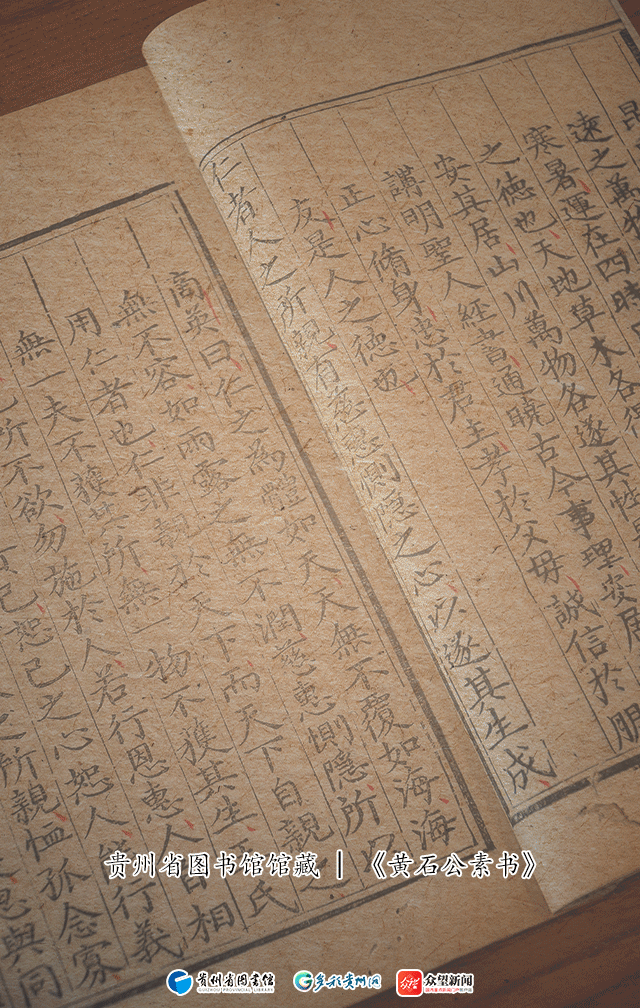 遠之萬物
寒暑運在四時
之德也天地草木各
安其居山川萬物各遂其性
講明聖人經書通曉古今事理安居
正心脩身忠於君主孝於父母誠信於朋
友是人之德也
仁者人之所親有慈惠惻隱之心以遂其生成
商英曰仁之為體如天天無不覆如海海
無不容如雨露之無不潤慈惠惻隱所以
用仁者也仁非親於天下而天下自親之
無一夫不獲其所無一物不獲其生 氏
己所不欲勿施於人若行恩惠人自相
己恕己之心恕人 行義
之所親恤孤念寡
恩與同
贵州省图书馆馆藏 | 《黄石公素书》
贵州省图书馆
GUIZHOU PROVINCIAL LIBRARY
多彩贵州网
众望新闻